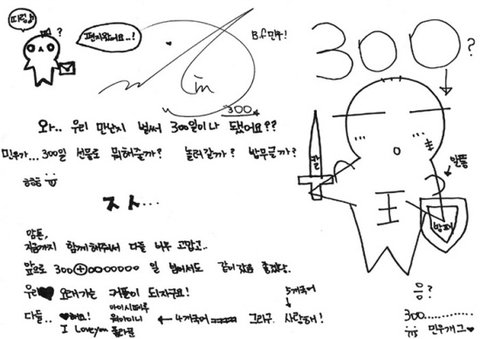 띠링♪
?
편지왔어요..!
B.f 민우!
300
300?
와.. 우리 만난지 벌써 300일이나 됐어요??
민우가... 300일 선물로 뭐해줄까? 놀러갈까? 밥무글까?
칼
알통
王
방패
암튼,
지금까지 함께해주셔서 다들 너무 고맙고..
앞으로 300+0000000 일 넘어서도 같이갔으면 좋겠당.
우리♥ 오래가는 커플이 되자구요!
다들.. ♥해요! 아이시떼루 워아이니 I Love you ← 4개국어 그라구. 사랑해!
5개국어
음?
300............
민우개그♥